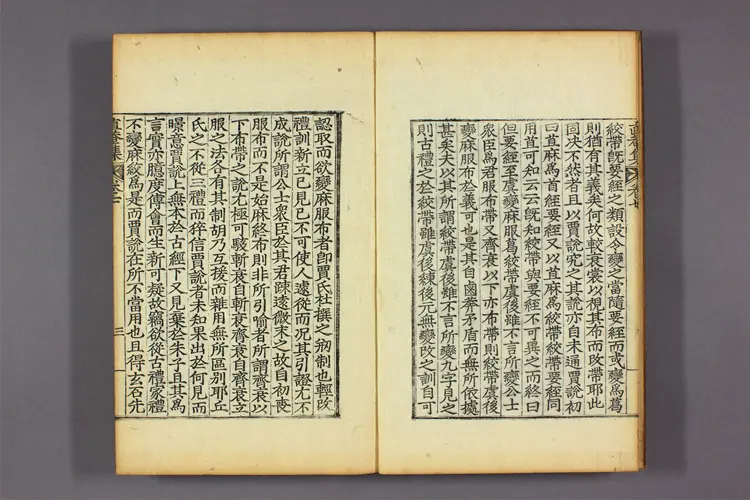 絞帶旣要絰之類設令變之當隨要絰而或變爲葛
則猶有其義矣何故較衰裳以視其布而攺帶耶此
固决不然者且以賈說究之其說亦自未通賈說初
曰苴麻爲首絰要絰又以苴麻爲絞帶絞帶要絰同
用苴可知云云旣知絞帶與要絰不可異之而終曰
但要絰至虞變麻服葛絞帶虞後雖不言所變公士
衆臣爲君服布帶又齊衰以下亦布帶則絞帶虞後
變麻服布於義可也是其自鹵莾矛盾而無所依據
甚矣夫以其所謂絞帶虞後雖不言所變九字見之
則古禮之於絞帶雖虞後練後元無變攺之訓自可
認取而欲變麻服布者卽賈氏杜撰之刱制也輕攺
禮訓新立己見已不可使人遠從而况其引證尤不
成說所謂公士衆臣於其君疎遠微末之故自初喪
服布而不是始麻終布則非所引喩者所謂齊衰以
下布帶之說尤極可駭斬衰自斬衰齊衰自齊衰立
服之法各有其制胡乃互援而雜用無所區別耶丘
氏之不從三禮而猝信賈說者未知果出於何見而
曔意賈說上無本於古經下又見棄於朱子且其爲
言實亦臆度傅會而生新可凝故竊欲從古禮家禮
不變麻絞爲是而賈說在所不當用也且得玄石先
三